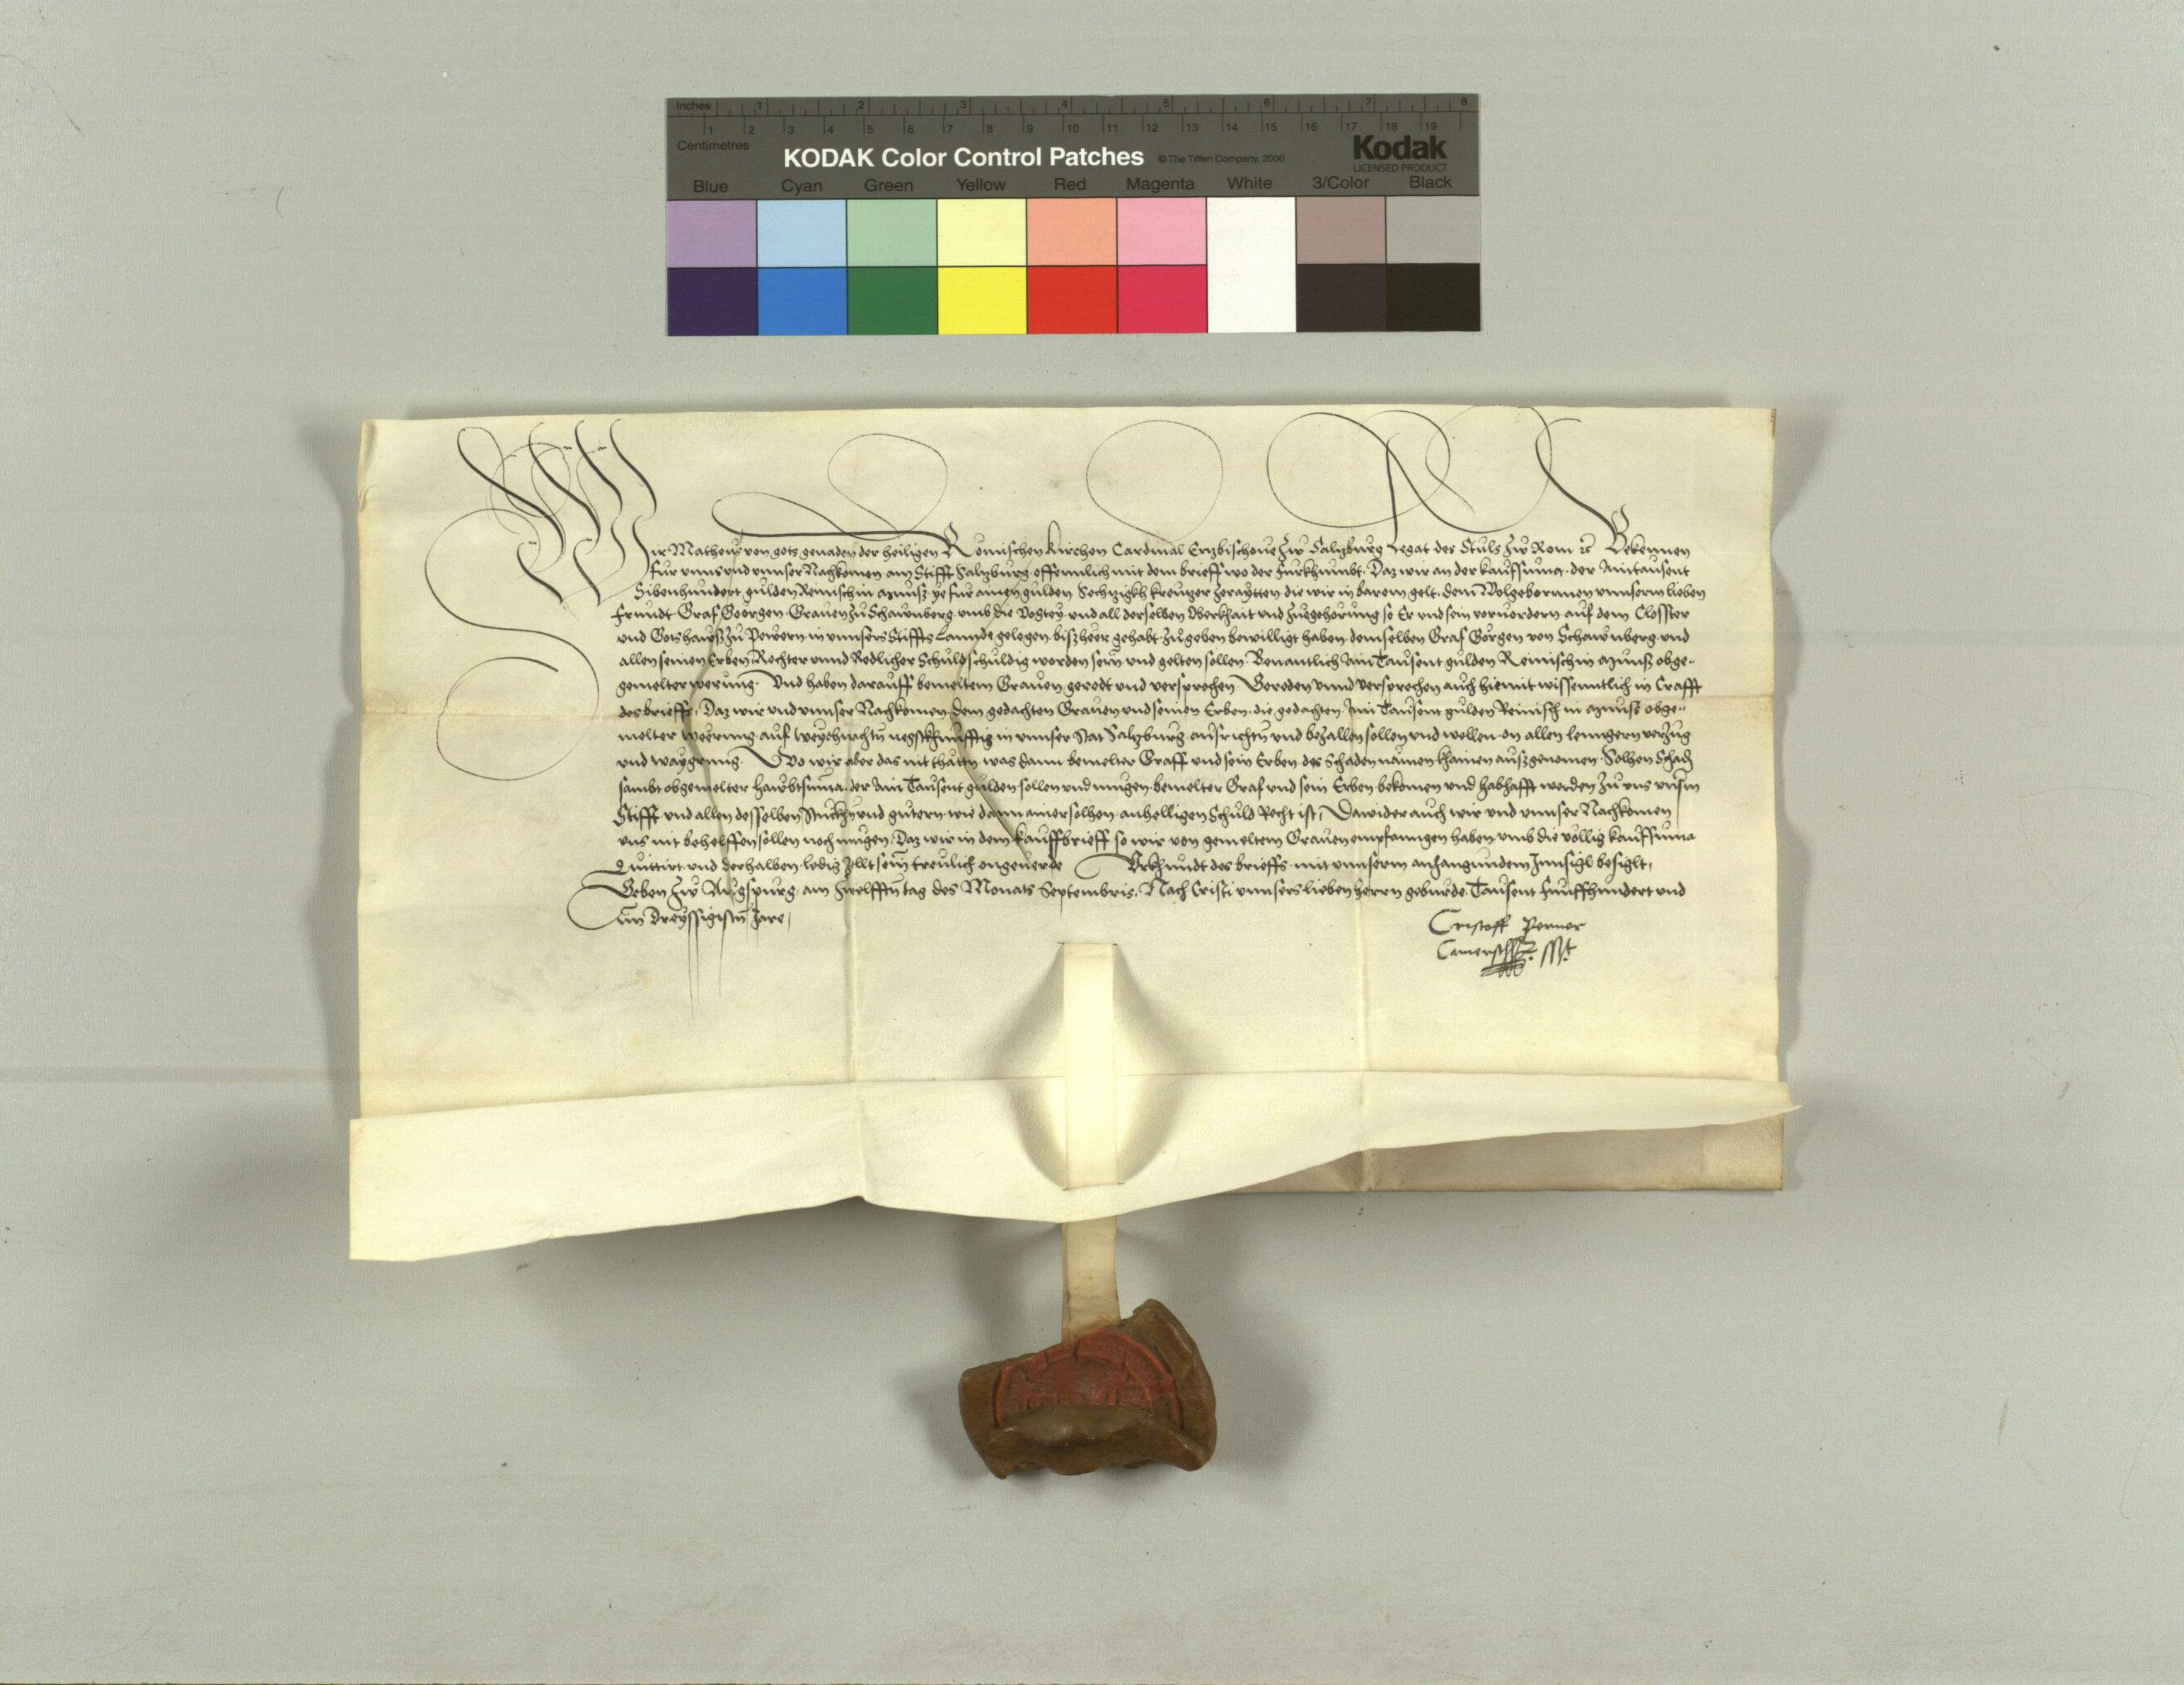 Inches 1 2 3 4 5 6 7 8
1 2 3 4 5 6 7 8 9 10 11 12 13 14 15 16 17 18 19
Centimetres
KODAK Color Control Patches © The Tiffen Company, 2000 Kodak
LICENSED PRODUCT
Blue Cyan Green Yellow Red Magenta White 3/Color Black
Wir Matheus von gots genaden der heiligen Römischen kirchen Cardinal Ertzbischoue zw Saltzburg Legat des Stuls zw Rom Bekennen
fur vnns vnd vnnser Nachkomen am Stifft Saltzburg offennlich mit dem brieff wo der furkhumbt. Daz wir an der kaufsuma der Aintausent
Sibenhundert gulden Reinisch in Munss ye fur ainen gulden Sechtzigkh kreutzer zeraytten die wir in barem gelt dem Wolgebornnen vnnserm lieben
frundt Graf Georgen Grauen zu Schawnberg vmb die Vogtey vnd all derselben Oberkhait vnd zuegehorung so Er vnd sein voruordern auf dem Closster
vnd Gotshawss zu Pewern in vnnsers Stiffts Lannde gelegen bissheer gehabt zugeben bewilligt haben demselben Graf Görgen von Schawnberg vnd
allen seinen Erben Rechter vnnd Redlicher Schuld schuldig worden sein vnd gelten sollen Benantlich Ain Tausent gulden Reinisch in Munss obge-
gemelter werung. Vnd haben darauff bemeltem Grauen geredt vnd versprochen Gereden vnnd versprechen auch hiemit wissenntlich in Crafft
des brieffs, Daz wir vnd vnnser Nachkomen dem gedachten Grauen vnd seinen Erben die gedachten Ain Tausent gulden Reinisch in Munss obge-
melter Weerung auf Weychnachtn negstkhunfftig in vnnser Stat Saltzburg ausrichtn vnd bezallen sollen vnd wellen on allen lenngern verzug
vnd waygrung. Wo wir aber das nit thattn was dann bemelter Graff vnd sein Erben des schaden namen khainen aussgenomen Solhen Schadn
sambt obgemelter hawbtsuma der Ain Tausent gulden sollen vnd mugen bemelter Graf vnd sein Erben bekomen vnd habhafft werden zu vns vnserm
Stifft vnd allen desselben Stuckhn vnd gutern wie dann ainer solhen anhelligen Schuld Recht ist, Dawider auch wir vnd vnnser Nachkomen
vns nit behelffen sollen noch mugen Daz wir in dem kauffbrieff so wir von gemeltem Grauen empfanngen haben vmb die völlig kaufsuma
Quittirt vnd derhalben ledig zellt sein treulich ongeuerde Vrkhundt des brieffs mit vnnserm anhangundem Innsigl besiglt,
Geben zw Augspurg am zwelfftn tag des Monats Septembris. Nach Cristi vnnsers lieben herrn geburde Tausent funffhundert vnd
Ain Dreyssigistn Jare,
Cristoff Perner